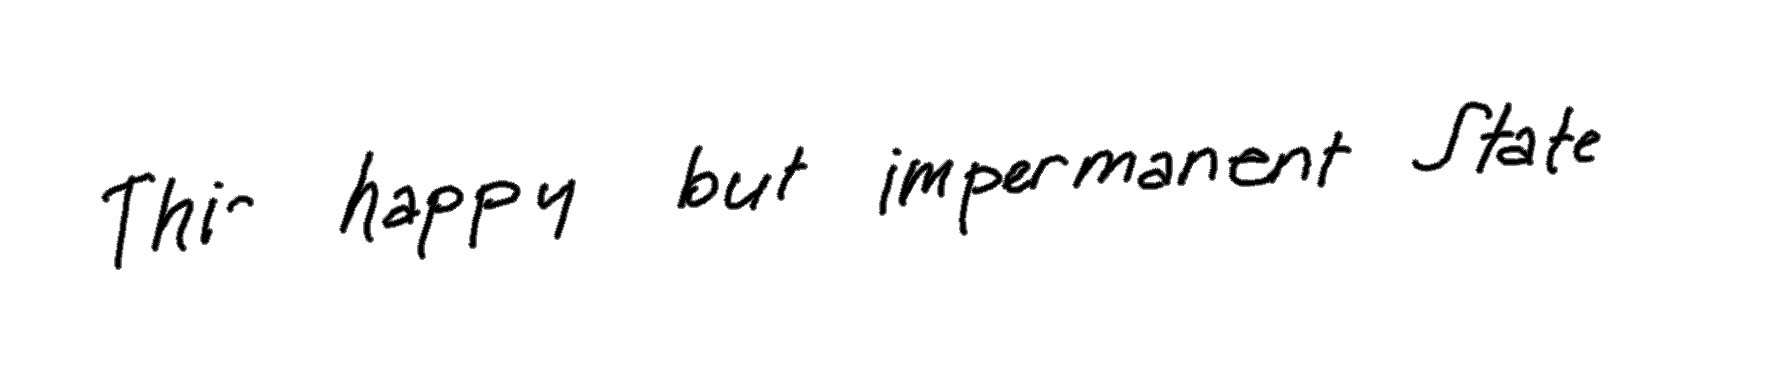 This happy but impermanent state